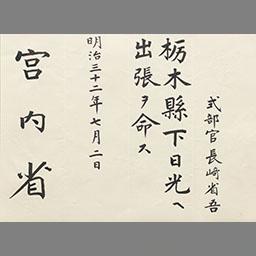 式部官長崎省吾
栃木縣下日光へ
出張ヲ命ス
明治三十二年七月二日
宮内省